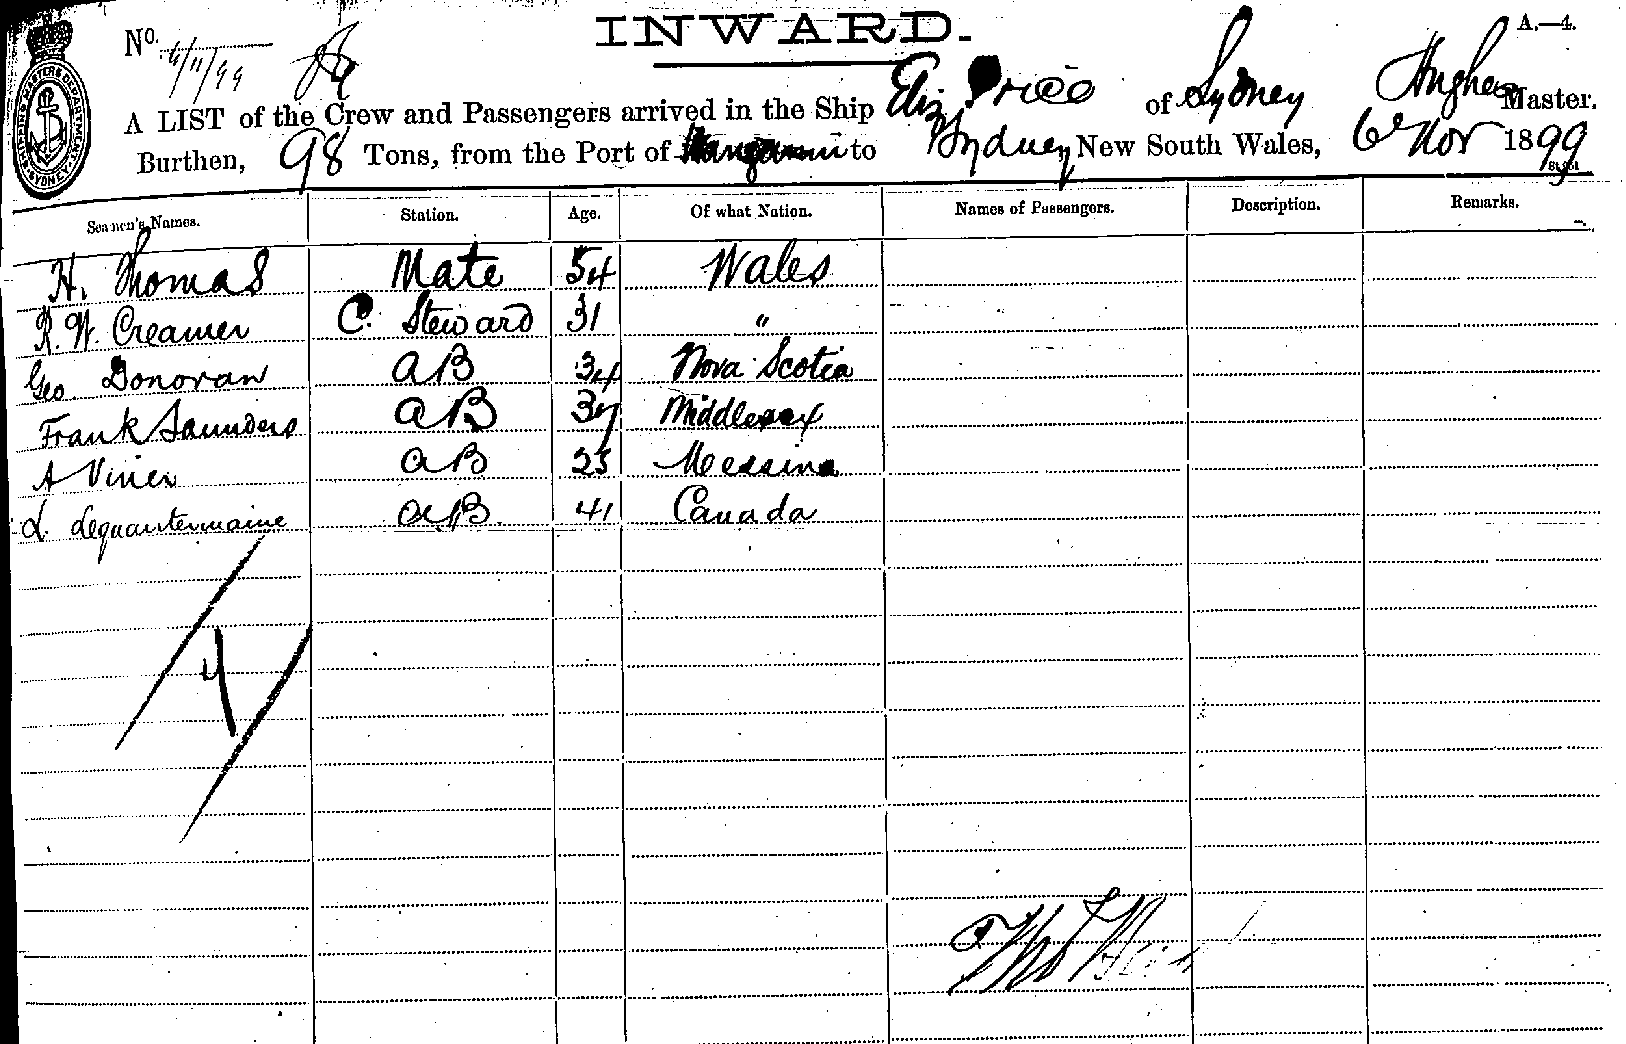 INWARD.
A.—4.
No. 6/11/99
A LIST of the Crew and Passengers arrived in the Ship Eliz. Price of Sydney Hughes Master.
Burthen, 98 Tons, from the Port of to Sydney New South Wales, 6th Nov 1899
Seamen's Names. Station. Age. Of what Nation. Names of Passengers. Description. Remarks.
H. Thomas Mate 54 Wales
R. W. Creamer C. Steward 31 "
Geo. Donovan AB 34 Nova Scotia
Frank Saunders AB 37 Middlesex
A Viner AB 25 Messina
L. Lequantermaine AB 41 Canada